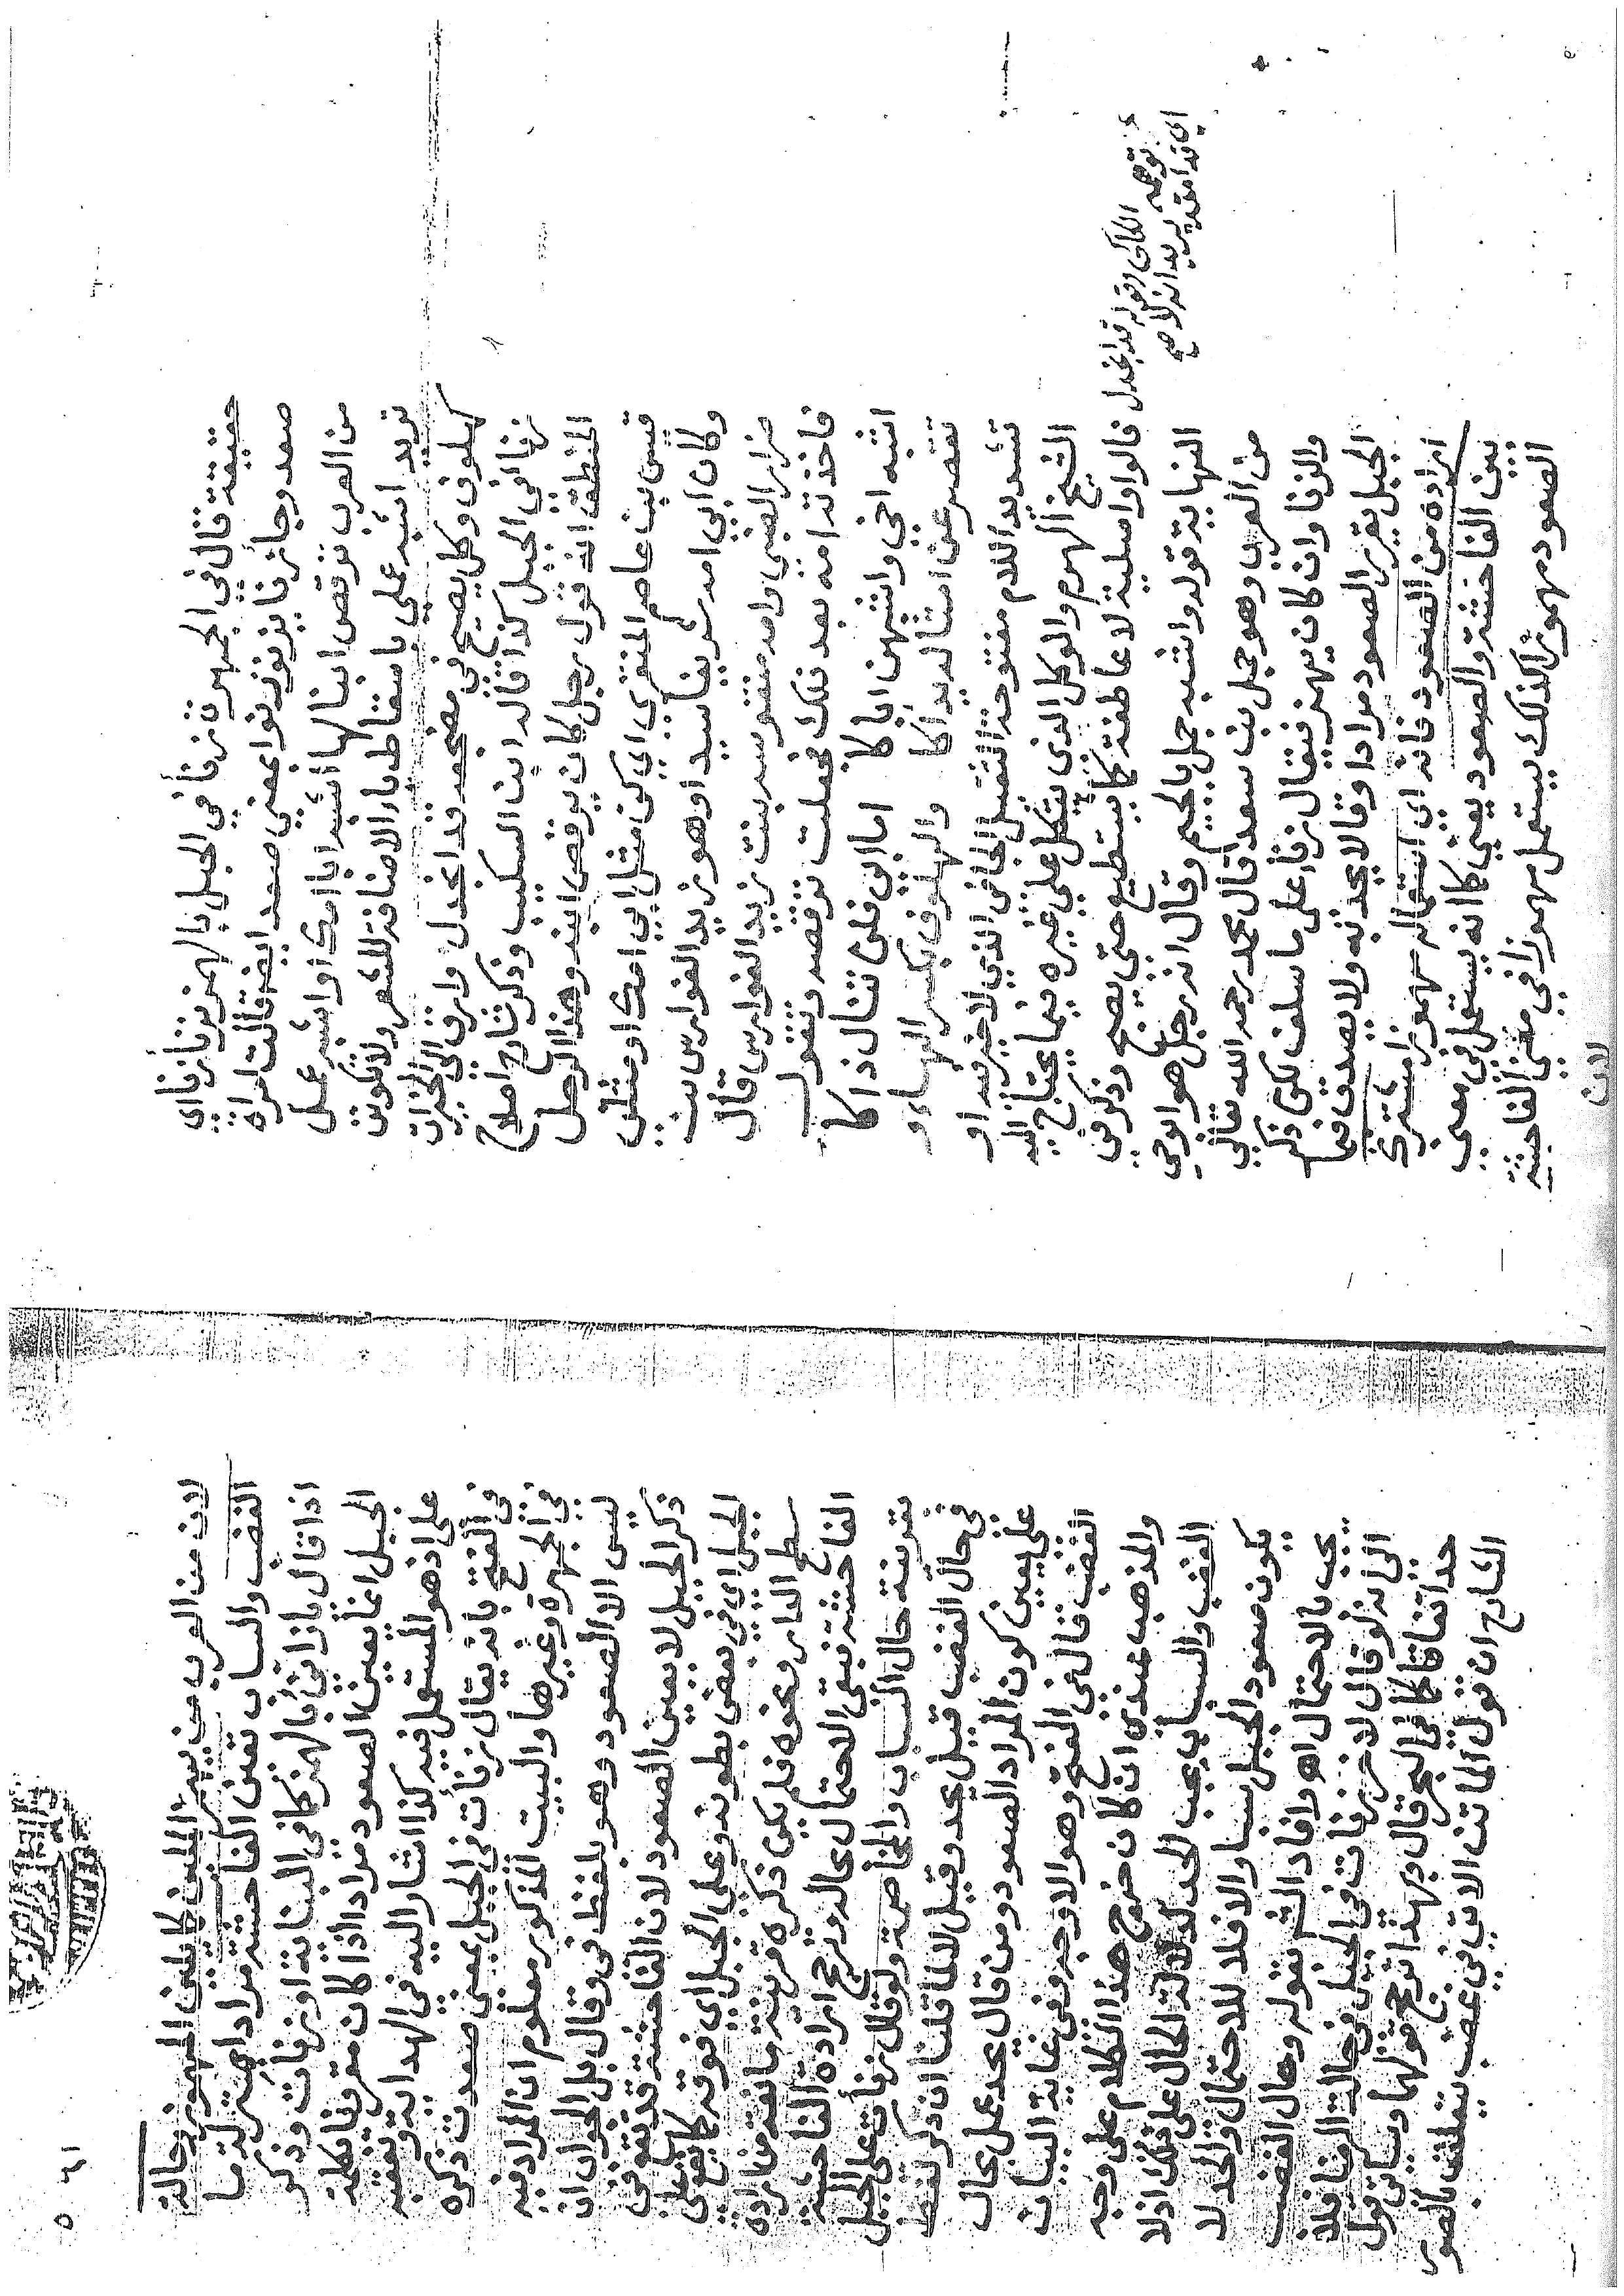 حقيقة قال في الجمهرة زنأ في الجبل بالهمز يزنأ زنأ اي
صعد وجائز زنا يزنو زنوا بمعني صعد ايضا قالت امراة
من العرب ترقص ابنا لها اشبه ابا امك او اشبه عمل
تريد اشبه عملي باسقاط ياء الاضافة للشعر ولا تكونن
كهلوف وكل يصبح في مضجعه قد انجدل وارق الي الخيرات
زنأ في الجبل كذا قاله ابن السكيت وذكر شارح اصلاح
المنطق انه قول رجل كان يرقص ابنه وهذا الرجل
قيس بن عاصم المنقري اي كن مثل ابي امك او مثلي
وكان ابي امه شريفا سيدا وهو زيد الفوارس بن
ضرار الضبي وامه منفوسة بنت زيد الفوارس قال
فاخذته امه بعد ذلك فجعلت ترقصه وتقول
اشبه اخي واشبهن اباكا اما ابي فلن تنال ذاكا
تقصر عن امثاله يداكا والهلوف بكسر الهاء و
تشديد اللام مفتوحة الثقيل الجافي الذي لا خير فيه او
الشيخ الهرم والوكل الذي يتكل علي غيره فيما يحتاج اليه
قالوا واصلية لا عاطفة كما يستطيع حتي يصبح وذكر في
النهاية قوله واشبه جمل بالجيم وقال انه رجل هو ابو حي
من العرب وهو جمل بن سعد قال محمد رحمه الله تعالي
والزنا وان كان يهمز فيقال زنأ على ما سلف لكن ذكر
الجبل يقرر الصعود مرادا وقالا يحد به ولا يصدق فيما
اراده من الصعود فانه اي استعماله مهموزا مشترك
بين الفاحشة والصعود يعني كما انه يستعمل في معني
الصعود مهموزا كذلك يستعمل مهموزا في معني الفاحشة
لان
الكاكي وقوله قد انجدل
اي قد امتد يريد انه
لان من العرب من يهمز اللين كما يلين المهموز وحالة
الغضب والسباب تعين الفاحشة مرادا بمنزلة ما
اذا قال يا زاني بالهمز كما في البناية او زنات وذكر
الجبل انما يعين الصعود مرادا اذا كان مقرونا بكلمة
على اذ هو المستعمل فيه كذا اشار اليه في الهداية وتعقبه
في الفتح بانه يقال زنأت في الجبل بمعني صعدت ذكره
في الجمهرة وغيرها والبيت المذكور معلوم ان المراد فيه
ليس الا الصعود وهو بلفظ في وقال بل الجواب ان
ذكر الجبل لا يعين الصعود لان الفاحشة قد تقع في
الجبل اي في بعض بطونه وعلي الجبل اي فوقه كما تقع على
سطح الدار ونحوه فلم يكن ذكره قرينة مانعة من ارادة
الفاحشة فبقي الاحتمال بحاله وترجح ارادة الفاحشة
بقرينة حال السباب والمخاصمة ولو قال زنأت علي الجبل
في حال الغضب قيل يحد وقيل لا لما قلنا ان ذكر لفظ
على يعين كون المراد الصعود ومن قال يحد عمل بحال
الغضب قال في الفتح وهو الاوجه وفي غاية البيان
والمذهب عندي ان كان خرج هذا الكلام على وجه
الغضب والسباب يجب الحد لدلالة الحال على ذلك اذ لا
يكون صعود الجبل سبا والا فلا للاحتمال والحد لا
يجب بالاحتمال اهـ وافاد الشم بقوله وحال الغضب
الى انه لو قال لاخر زنات في الجبل في حالة الرضا فلا
حد اتفاقا كما في البحر قال وبهذا ترجح قولهما وسياتي قول
الشارح ان قول الماتن الاتي في غضب يتعلق بالصور